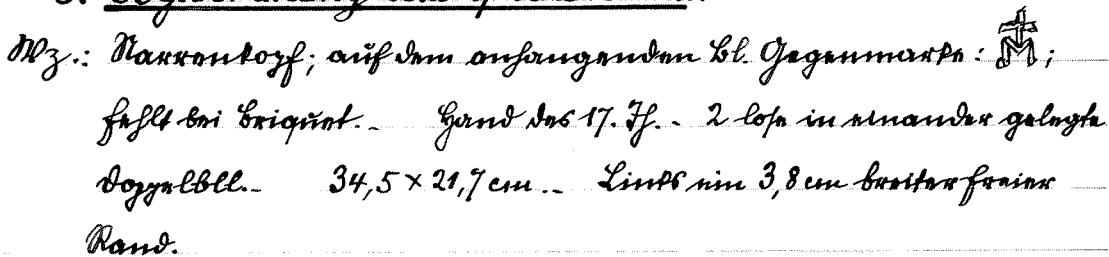 Wz.: Narrenkopf; auf dem anhangenden Bl. Gegenmarke: M;
fehlt bei Briquet. - Hand des 17. Jh. - 2 lose in einander gelegte
Doppelbll. - 34,5 × 21,7 cm. - Links ein 3,8 cm breiter freier
Rand.